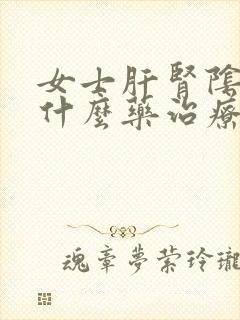 女士肝腎陰
什麼藥治療
魂牽夢縈玲瓏